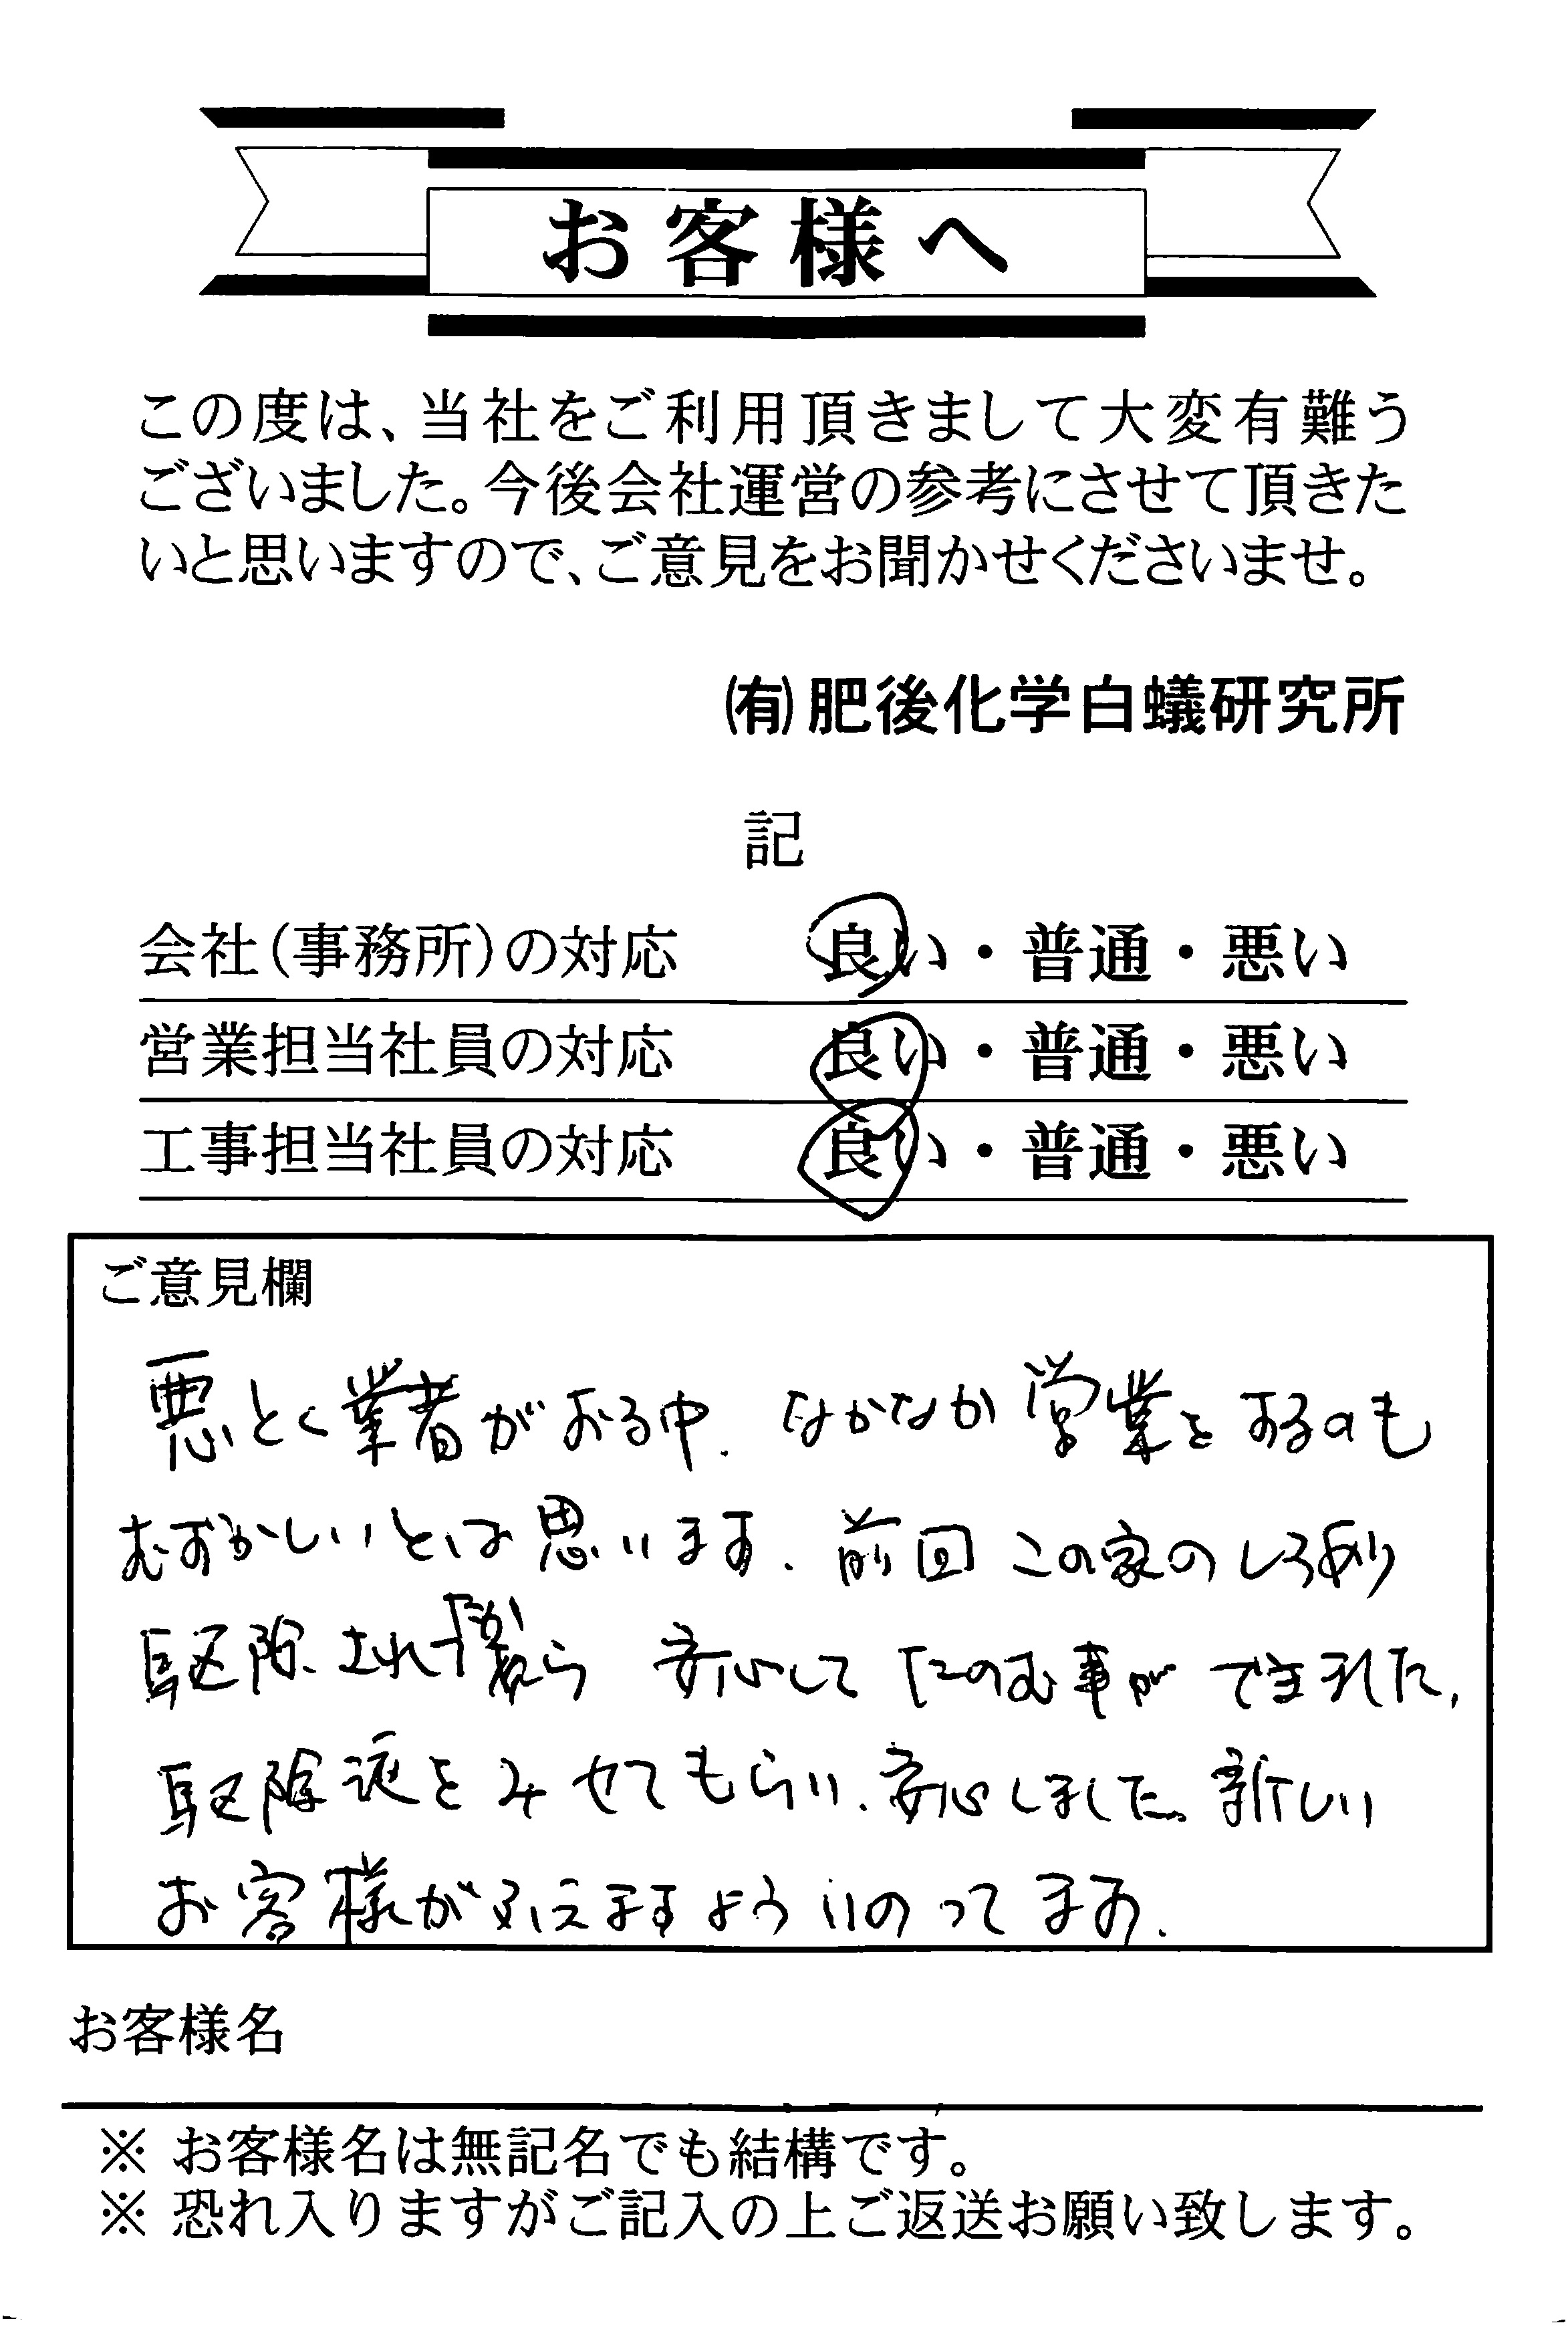 お客様へ
この度は、当社をご利用頂きまして大変有難う
ございました。今後会社運営の参考にさせて頂きた
いと思いますので、ご意見をお聞かせくださいませ。
㈲肥後化学白蟻研究所
記
会社(事務所)の対応 良い・普通・悪い
営業担当社員の対応 良い・普通・悪い
工事担当社員の対応 良い・普通・悪い
ご意見欄
悪とく業者がおる中、なかなか営業をするのも
むずかしいとは思います。前回この家のしろあり
駆除されてたから 安心してたのむ事ができました。
駆除液をみせてもらい、安心しました。新しい
お客様がふえますよういのってます。
お客様名
※ お客様名は無記名でも結構です。
※ 恐れ入りますがご記入の上ご返送お願い致します。